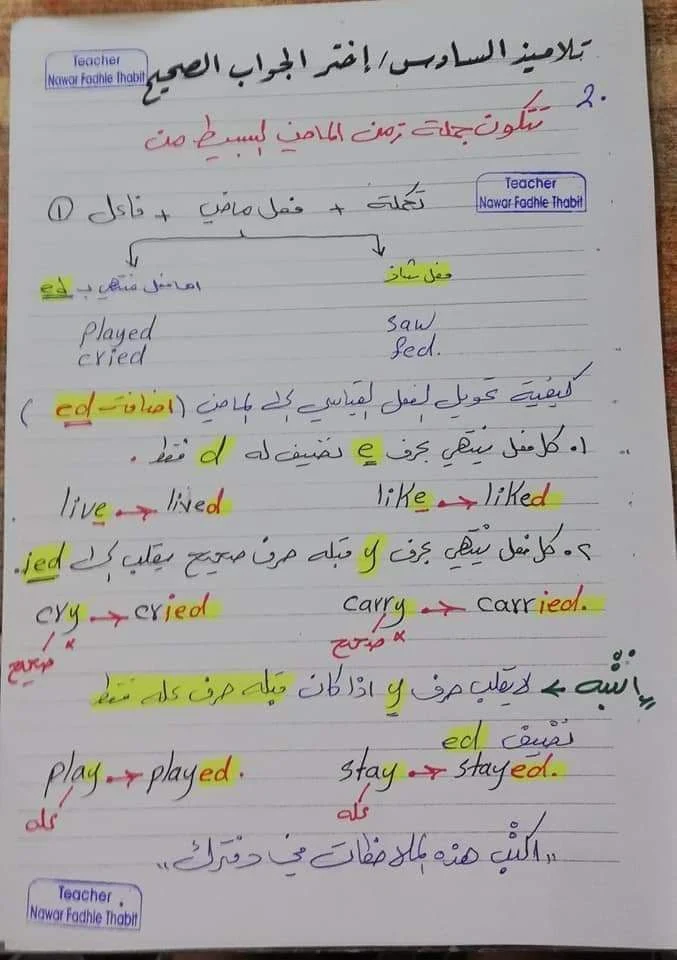 Teacher
Nawar Fadhle Thabit
تلاميذ السادس / إختر الجواب الصحيح
2.
تتكون جملة زمن الماضي البسيط من
Teacher
Nawar Fadhle Thabit
① فاعل + فعل ماضي + تكملة
فعل شاذ
اما فعل منتهي بـ ed
played saw
cried fed.
كيفية تحويل الفعل القياسي الى الماضي (اضافة ed)
١. كل فعل ينتهي بحرف e نضيف له d فقط.
live → lived like → liked
٢. كل فعل ينتهي بحرف y قبله حرف صحيح يقلب الى ied.
cry → cried carry → carried.
صحيح x صحيح x
إنتبه ← لا يقلب حرف y اذا كان قبله حرف عله فقط
نضيف ed
play → played. stay → stayed.
عله عله
,, اكتب هذه الملاحظات في دفترك ,,
Teacher
Nawar Fadhle Thabit